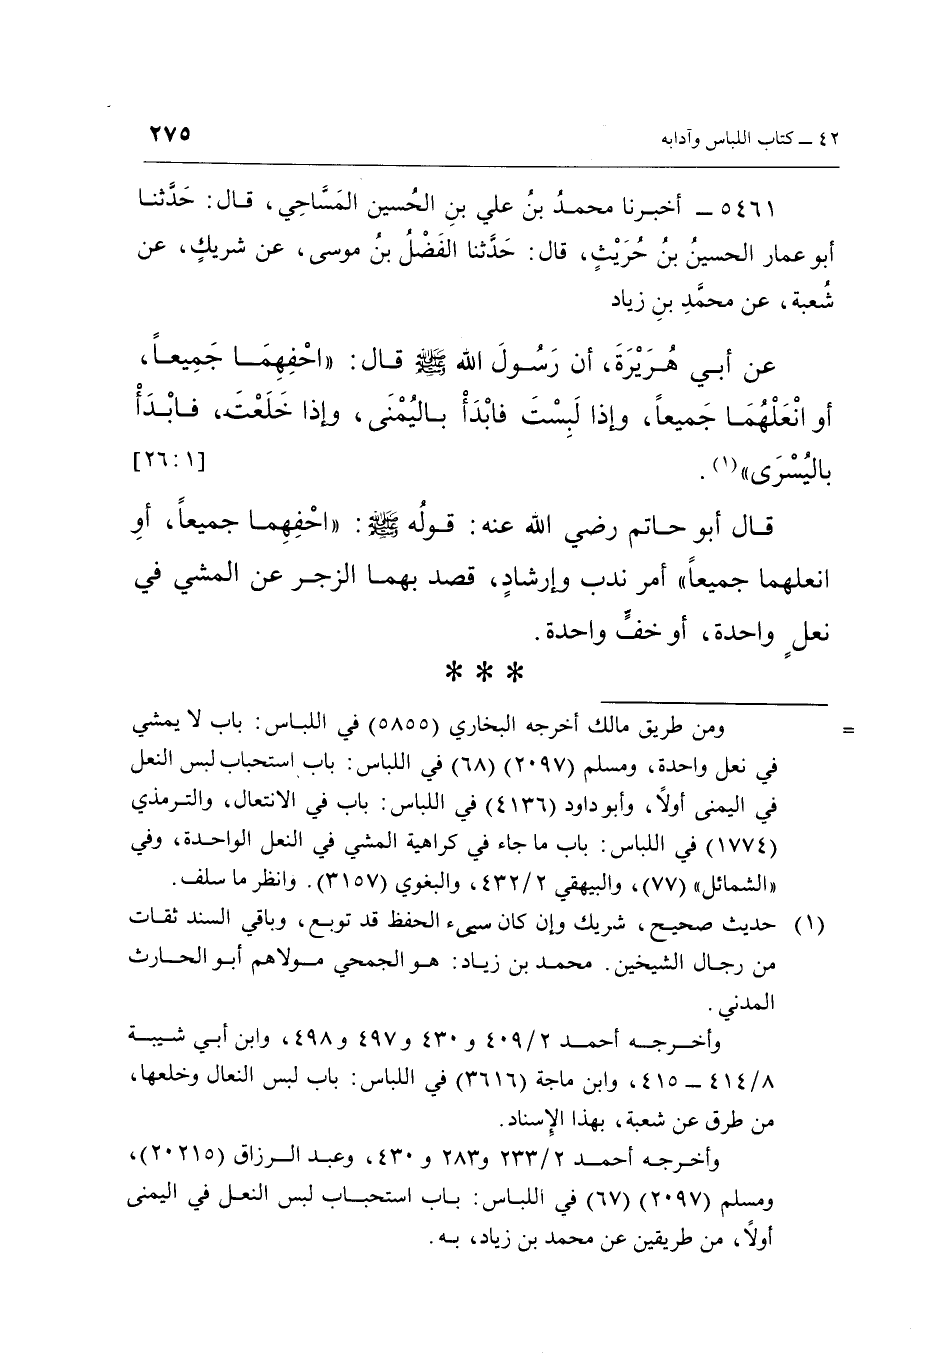 ٤٢ ــ كتاب اللباس وآدابه ٢٧٥
٥٤٦١ ــ أخبرنا محمدُ بنُ علي بنِ الحُسين المَسَّاحِي، قال: حَدَّثنا
أبو عمار الحسينُ بنُ حُرَيْثٍ، قال: حَدَّثنا الفَضْلُ بنُ موسى، عن شريكٍ، عن
شُعبة، عن محمَّدِ بنِ زياد
عن أبي هُرَيْرَةَ، أن رَسُولَ الله ﷺ قال: «احْفِهِمَا جَمِيعاً،
أو انْعَلْهُمَا جَميعاً، وإذا لَبِسْتَ فابْدَأْ باليُمْنَى، وإذا خَلَعْتَ، فابْدَأْ
باليُسْرَى»(١). [١ :٢٦]
قال أبو حاتم رضي الله عنه: قولُه ﷺ: «احْفِهِما جميعاً، أوِ
انعلهما جميعاً» أمر ندب وإرشادٍ، قصد بهما الزجر عن المشي في
نعلٍ واحدة، أو خفٍّ واحدة.
* * *
= ومن طريق مالك أخرجه البخاري (٥٨٥٥) في اللباس: باب لا يمشي
في نعل واحدة، ومسلم (٢٠٩٧) (٦٨) في اللباس: باب استحباب لبس النعل
في اليمنى أولاً، وأبو داود (٤١٣٦) في اللباس: باب في الانتعال، والترمذي
(١٧٧٤) في اللباس: باب ما جاء في كراهية المشي في النعل الواحدة، وفي
«الشمائل» (٧٧)، والبيهقي ٤٣٢/٢، والبغوي (٣١٥٧). وانظر ما سلف.
(١) حديث صحيح، شريك وإن كان سييء الحفظ قد توبع، وباقي السند ثقات
من رجال الشيخين. محمد بن زياد: هو الجمحي مولاهم أبو الحارث
المدني.
وأخرجه أحمد ٤٠٩/٢ و ٤٣٠ و٤٩٧ و٤٩٨، وابن أبي شيبة
٤١٤/٨ ــ ٤١٥، وابن ماجة (٣٦١٦) في اللباس: باب لبس النعال وخلعها،
من طرق عن شعبة، بهذا الإسناد.
وأخرجه أحمد ٢٣٣/٢ و٢٨٣ و ٤٣٠، وعبد الرزاق (٢٠٢١٥)،
ومسلم (٢٠٩٧) (٦٧) في اللباس: باب استحباب لبس النعل في اليمنى
أولاً، من طريقين عن محمد بن زياد، به.